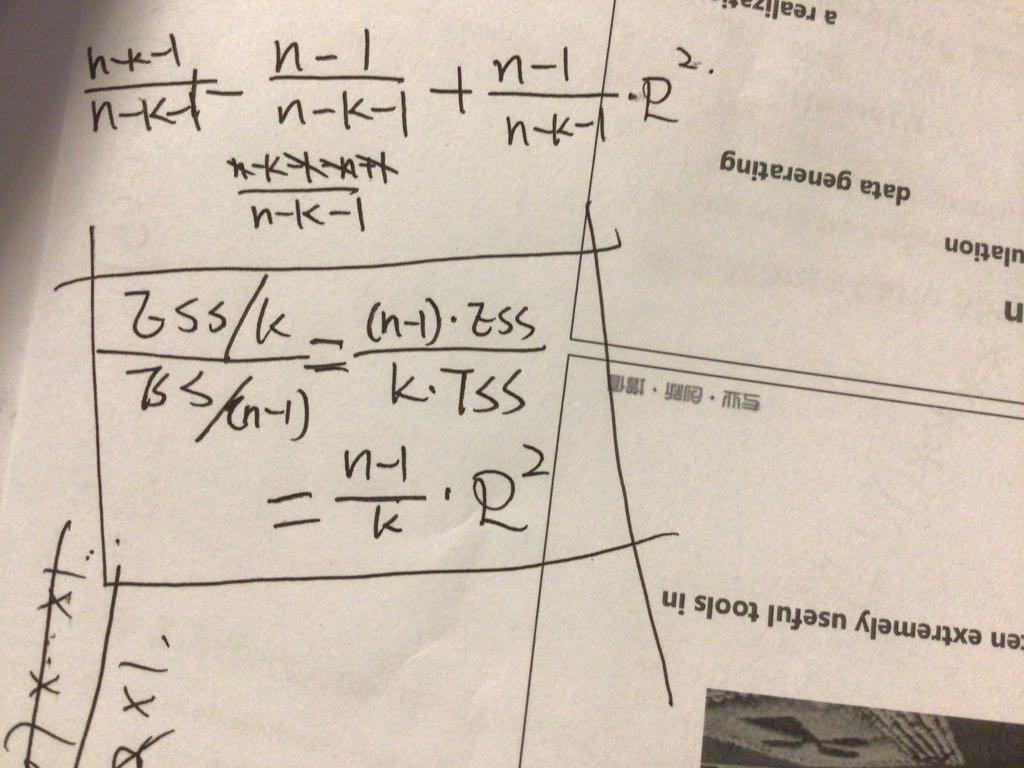 n-k-1/n-k-1 - n-1/n-k-1 + n-1/n-k-1 · R².
n-k-1
ESS/k / TSS/(n-1) = (n-1)·ESS / k·TSS
= n-1/k · R²
a
data generating
ulation
n
专业·创新·增值
en extremely useful tools in